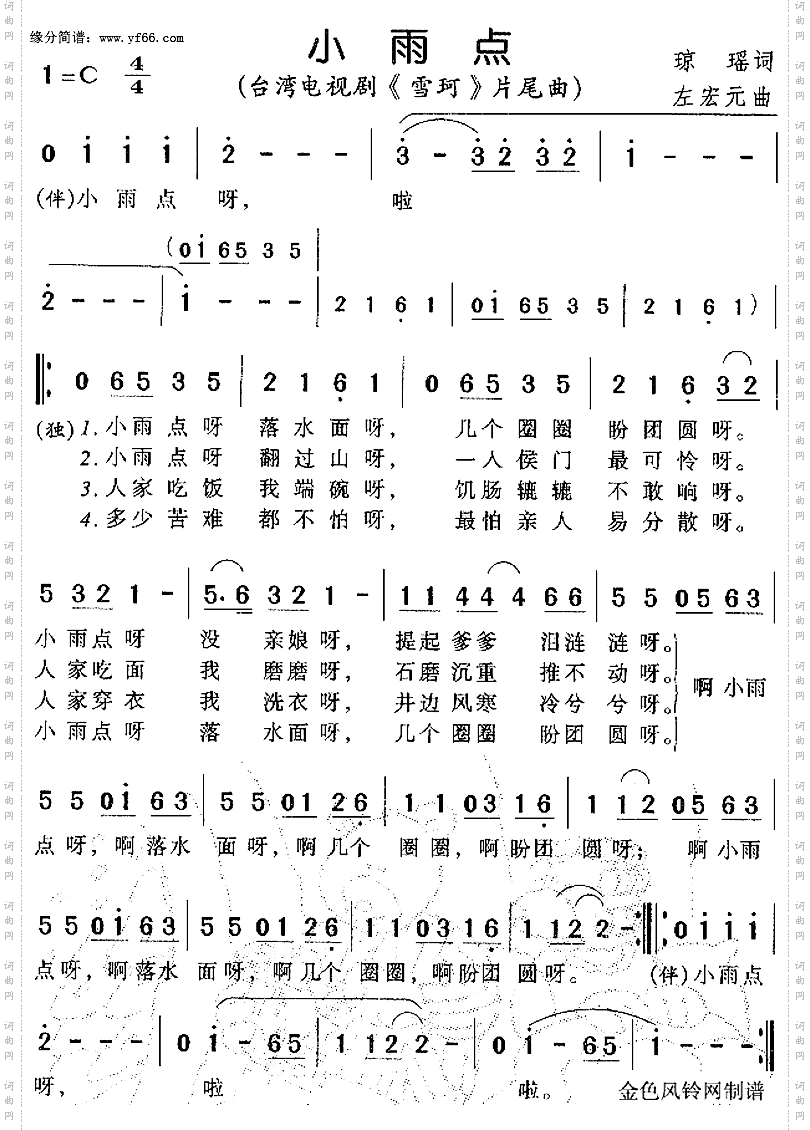 缘分简谱：www.yf66.com
小雨点
1=C 4/4
(台湾电视剧《雪珂》片尾曲)
琼 瑶词
左宏元曲
0 i i i | 2 - - - | 3 - 3 2 3 2 | i - - - |
(伴)小 雨 点 呀， 啦
(0 i 6 5 3 5
2 - - - | i - - - | 2 1 6 1 | 0 i 6 5 3 5 | 2 1 6 1) |
0 6 5 3 5 | 2 1 6 1 | 0 6 5 3 5 | 2 1 6 3 2 |
(独) 1.小雨 点 呀 落 水 面 呀， 几个 圈 圈 盼 团 圆 呀。
2.小雨 点 呀 翻 过 山 呀， 一人 侯 门 最 可 怜 呀。
3.人家 吃 饭 我 端 碗 呀， 饥肠 辘 辘 不 敢 响 呀。
4.多少 苦 难 都 不 怕 呀， 最怕 亲 人 易 分 散 呀。
5 3 2 1 - | 5. 6 3 2 1 - | 1 1 4 4 4 6 6 | 5 5 0 5 6 3 |
小 雨点 呀 没 亲娘 呀， 提起 爹爹 泪涟 涟 呀。
人 家吃 面 我 磨磨 呀， 石磨 沉重 推不 动 呀。
啊 小雨
人 家穿 衣 我 洗衣 呀， 井边 风寒 冷兮 兮 呀。
小 雨点 呀 落 水面 呀， 几个 圈圈 盼团 圆 呀。
5 5 0 i 6 3 | 5 5 0 1 2 6 | 1 1 0 3 1 6 | 1 1 2 0 5 6 3 |
点 呀，啊落水 面 呀，啊几个 圈 圈，啊盼团 圆 呀； 啊 小雨
5 5 0 i 6 3 | 5 5 0 1 2 6 | 1 1 0 3 1 6 | 1 1 2 2 - :| 0 i i i |
点 呀，啊落水 面 呀，啊几个 圈 圈，啊盼团 圆 呀。 (伴)小雨点
2 - - - | 0 i - 6 5 | 1 1 2 2 - | 0 i - 6 5 | i - - - :|
呀， 啦 啦。 金色风铃网制谱
词曲网